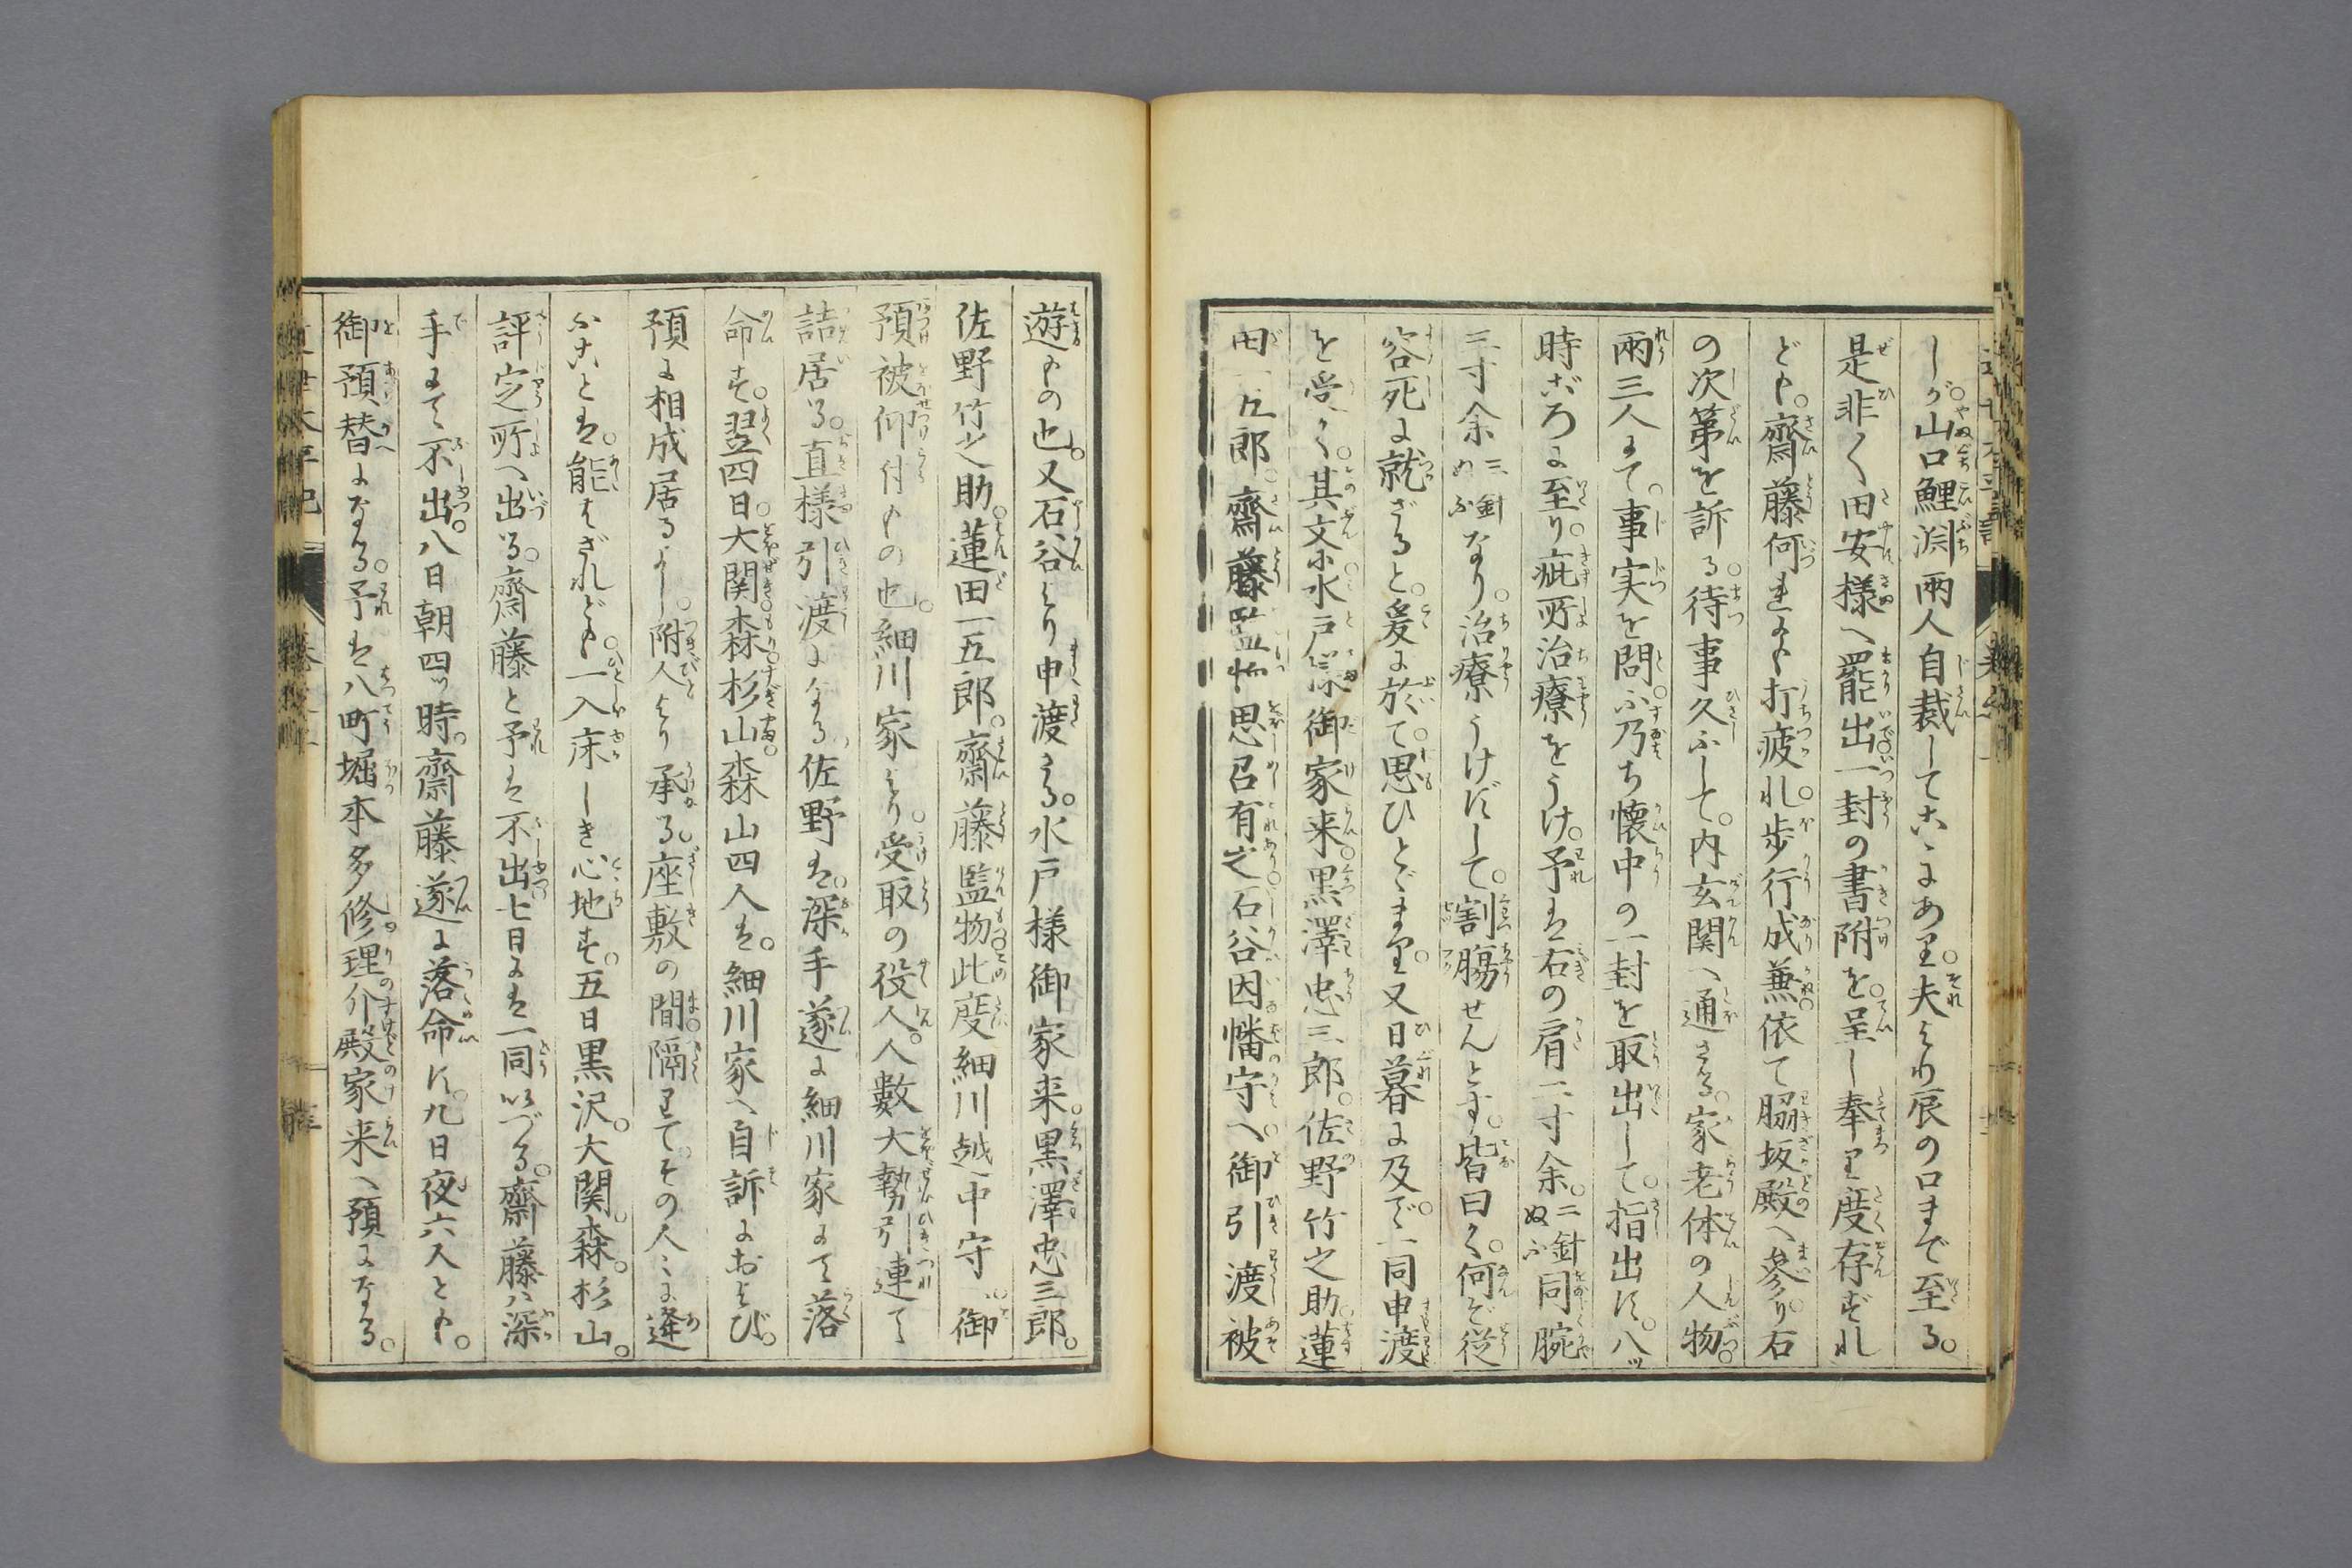 しが。山口鯉淵兩人自裁してこゝにあり。夫より辰の口まで至る。
是非く田安様へ罷出一封の書附を。呈し奉り度存ずれ
ども。齋藤何里より打疲れ。歩行成兼。依て脇坂殿へ參り右
の次第を訴る。待事久ふして。内玄関へ通さる。家老体の人物。
兩三人にて。事実を問ふ。乃ち懐中の一封を取出して。指出す。八ッ
時ごろに至り。疵所治療をうけ。予は右の肩二寸余。二針ぬふ同腕
三寸余三針ぬふなり。治療うけずして。割腸せんとす。皆曰く。何ぞ従
容死に就ざると。爰に於て。思ひとゞまり。又日暮に及で。一同申渡
を受く。其文に水戸殿御家来。黒澤忠三郎。佐野竹之助。蓮
田一五郎。齋藤監物思召有之石谷因幡守へ御引渡被
遊もの也。又石谷より申渡さる。水戸様御家来。黒澤忠三郎。
佐野竹之助。蓮田一五郎。齋藤監物此度細川越中守へ御
預被仰付もの也。細川家より。受取の役人。人數大勢引連て
詰居る。直様引渡になる佐野は。深手遂に細川家にて落
命す。翌四日。大関森杉山森山四人は。細川家へ自訴におよび。
預に相成居るよし。附人より承る。座敷の間。隔りてその人〻に逢
ふことは。能はざれども。一入床しき心地す。五日黒沢。大関。森。杉山。
評定所へ出る。齋藤と予は不出七日には一同いづる。齋藤ハ深
手にて不出。八日朝四ッ時。齋藤遂に落命す。九日夜六人とも。
御預替になる。予は八町堀本多修理介殿家来へ預になる。